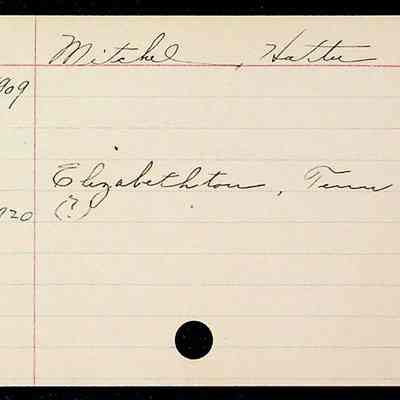 Mitchel, Hattie
909
Elizabethton, Tenn
920 (?)